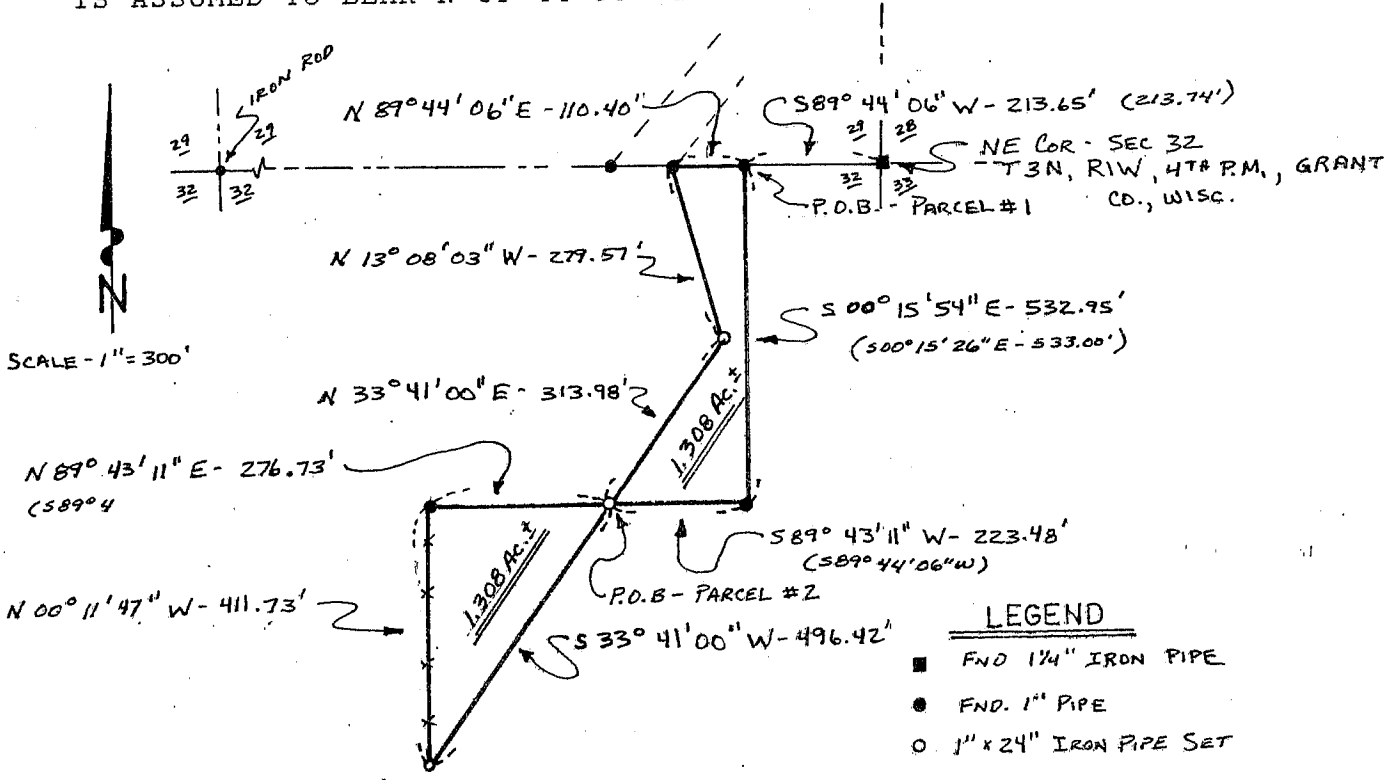 IS ASSUMED TO BEAR N
IRON ROD
N 89° 44' 06" E - 110.40"
S89° 44' 06" W - 213.65' (213.74')
29
29
29
28
32
32
32
33
NE COR - SEC 32
T3N, R1W, 4TH P.M., GRANT
CO., WISC.
P.O.B. - PARCEL #1
N 13° 08' 03" W - 279.57'
N
S 00° 15' 54" E - 532.95'
(S00° 15' 26" E - 533.00')
SCALE - 1" = 300'
N 33° 41' 00" E - 313.98'
1.308 Ac.±
N 89° 43' 11" E - 276.73'
(S89° 4
S89° 43' 11" W - 223.48'
(S89° 44' 06" W)
1.308 Ac.±
P.O.B - PARCEL #2
N 00° 11' 47" W - 411.73'
S 33° 41' 00" W - 496.42'
LEGEND
FND 1¼" IRON PIPE
FND. 1" PIPE
1" x 24" IRON PIPE SET